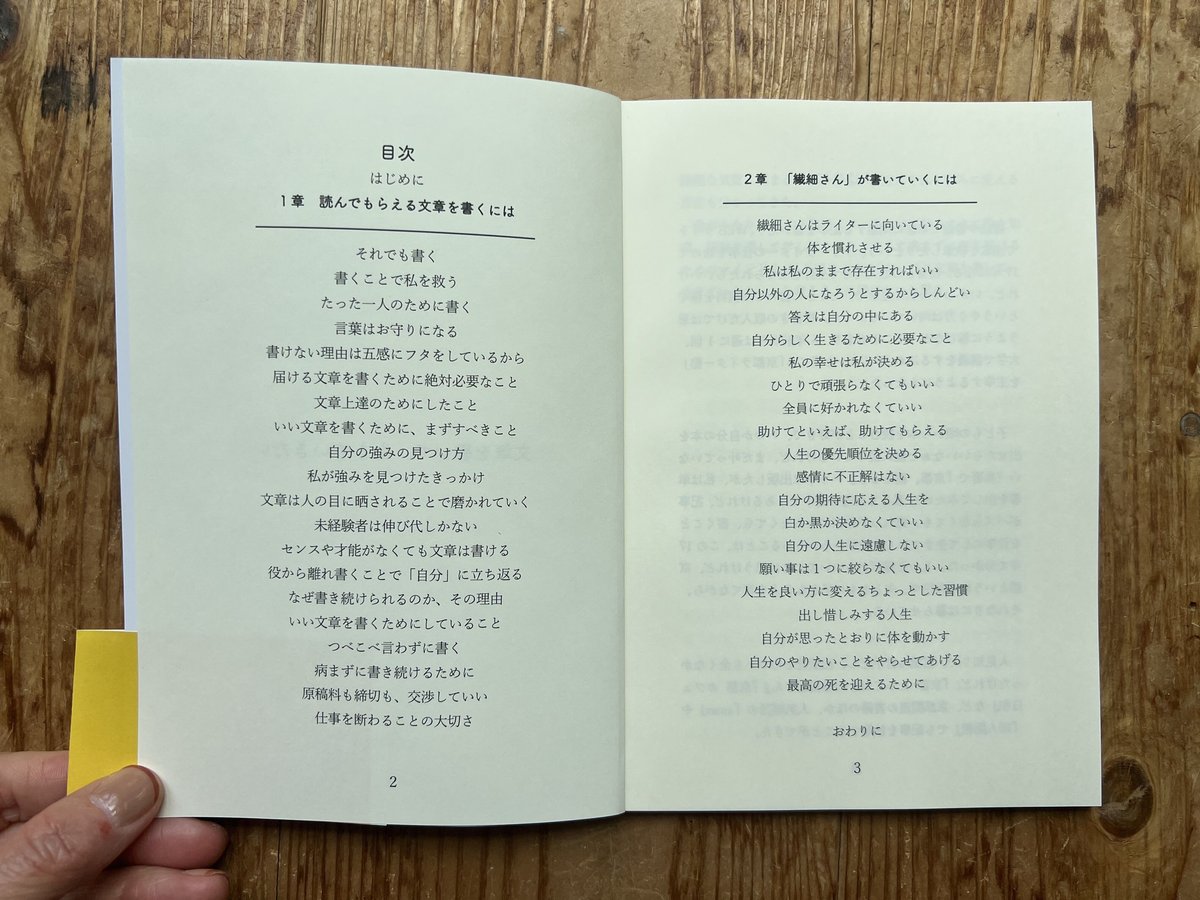 目次
はじめに
1章　読んでもらえる文章を書くには
それでも書く
書くことで私を救う
たった一人のために書く
言葉はお守りになる
書けない理由は五感にフタをしているから
届ける文章を書くために絶対必要なこと
文章上達のためにしたこと
いい文章を書くために、まずすべきこと
自分の強みの見つけ方
私が強みを見つけたきっかけ
文章は人の目に晒されることで磨かれていく
未経験者は伸び代しかない
センスや才能がなくても文章は書ける
役から離れ書くことで「自分」に立ち返る
なぜ書き続けられるのか、その理由
いい文章を書くためにしていること
つべこべ言わずに書く
病まずに書き続けるために
原稿料も締切も、交渉していい
仕事を断わることの大切さ
2
2章　「繊細さん」が書いていくには
繊細さんはライターに向いている
体を慣れさせる
私は私のままで存在すればいい
自分以外の人になろうとするからしんどい
答えは自分の中にある
自分らしく生きるために必要なこと
私の幸せは私が決める
ひとりで頑張らなくてもいい
全員に好かれなくていい
助けてといえば、助けてもらえる
人生の優先順位を決める
感情に不正解はない
自分の期待に応える人生を
白か黒か決めなくていい
自分の人生に遠慮しない
願い事は1つに絞らなくてもいい
人生を良い方に変えるちょっとした習慣
出し惜しみする人生
自分が思ったとおりに体を動かす
自分のやりたいことをやらせてあげる
最高の死を迎えるために
おわりに
3